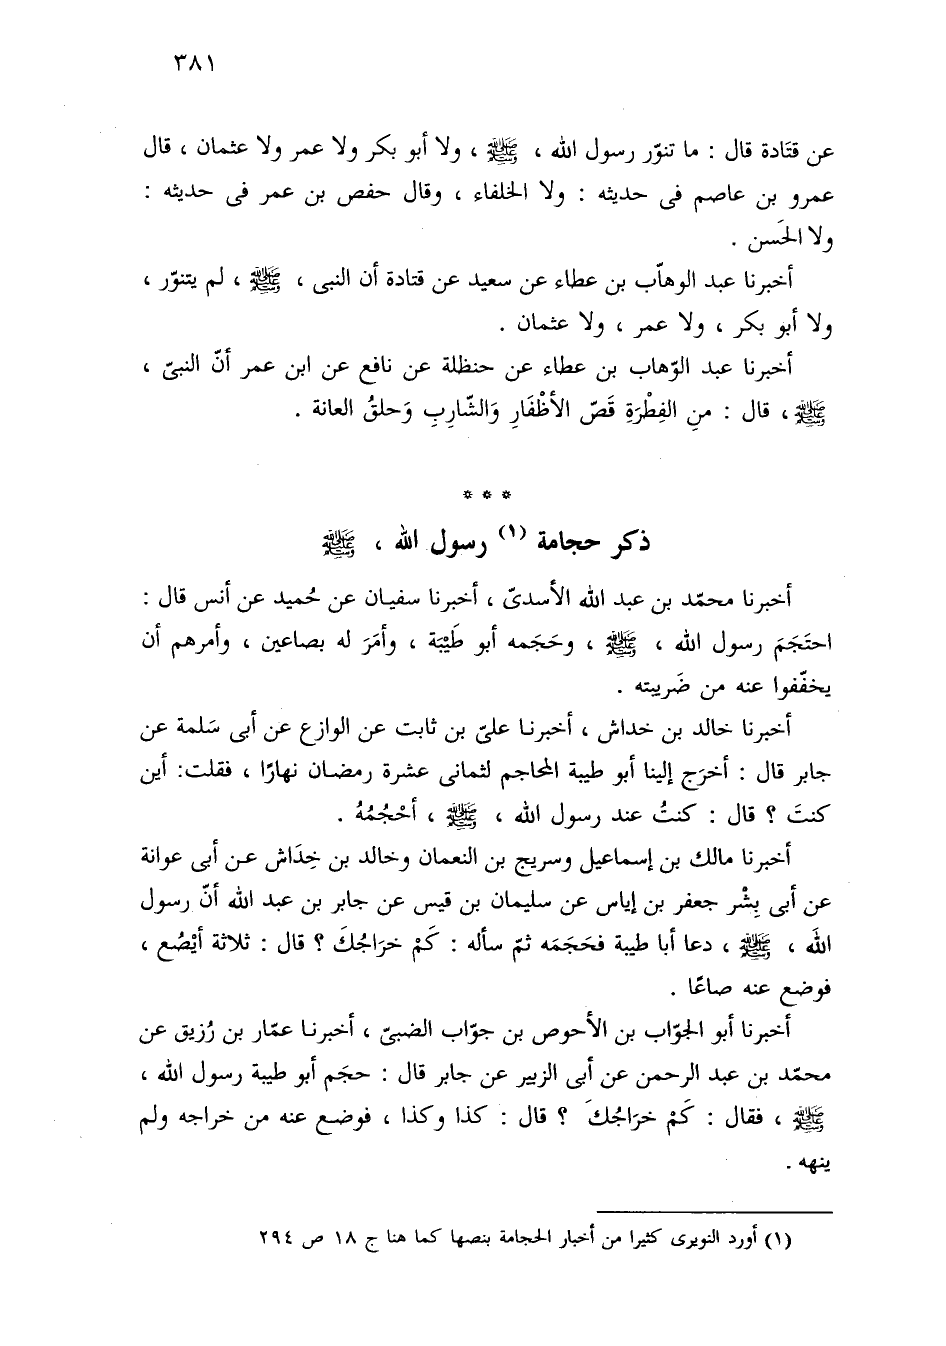 ٣٨١
عن قتَادة قال : ما تنوّر رسول الله ، ﷺ ، ولا أبو بكر ولا عمر ولا عثمان ، قال
عمرو بن عاصم فى حديثه : ولا الخلفاء ، وقال حفص بن عمر فى حديثه :
ولا الحَسن .
أخبرنا عبد الوهاّب بن عطاء عن سعيد عن قتادة أن النبى ، ﷺ ، لم يتنوّر ،
ولا أبو بكر ، ولا عمر ، ولا عثمان .
أخبرنا عبد الوّهاب بن عطاء عن حنظلة عن نافع عن ابن عمر أنّ النبىّ ،
ﷺ ، قال : منِ الفِطْرَةِ قَصّ الأظْفَارِ وَالشّارِبِ وَحلقُ العانة .
* * *
ذكر حجامة (١) رسول الله ، ﷺ
أخبرنا محمّد بن عبد الله الأسدىّ ، أخبرنا سفيان عن حُميد عن أنس قال :
احتَجَمَ رسول الله ، ﷺ ، وحَجَمه أبو طَيْبَة ، وأمَرَ له بصاعين ، وأمرهم أن
يخفّفوا عنه من ضَريبته .
أخبرنا خالد بن خداش ، أخبرنا علىّ بن ثابت عن الوازع عن أبى سَلمة عن
جابر قال : أخرَج إلينا أبو طيبة المحاجم لثمانى عشرة رمضان نهارًا ، فقلت: أين
كنتَ ؟ قال : كنتُ عند رسول الله ، ﷺ ، أحْجُمُهُ .
أخبرنا مالك بن إسماعيل وسريج بن النعمان وخالد بن خِدَاش عن أبى عوانة
عن أبى بِشْر جعفر بن إياس عن سليمان بن قيس عن جابر بن عبد الله أنّ رسول
اللهَ ، ﷺ ، دعا أبا طيبة فحَجَمَه ثمّ سأله : كَمْ خرَاجُكَ ؟ قال : ثلاثة أيْصُع ،
فوضع عنه صاعًا .
أخبرنا أبو الجوّاب بن الأحوص بن جوّاب الضبىّ ، أخبرنا عمّار بن رُزيق عن
محمّد بن عبد الرحمن عن أبى الزبير عن جابر قال : حجَم أبو طيبة رسول الله ،
ﷺ ، فقال : كَمْ خرَاجُكَ ؟ قال : كذا وكذا ، فوضع عنه من خراجه ولم
ينهه .
(١) أورد النويرى كثيرا من أخبار الحجامة بنصها كما هنا ج ١٨ ص ٢٩٤